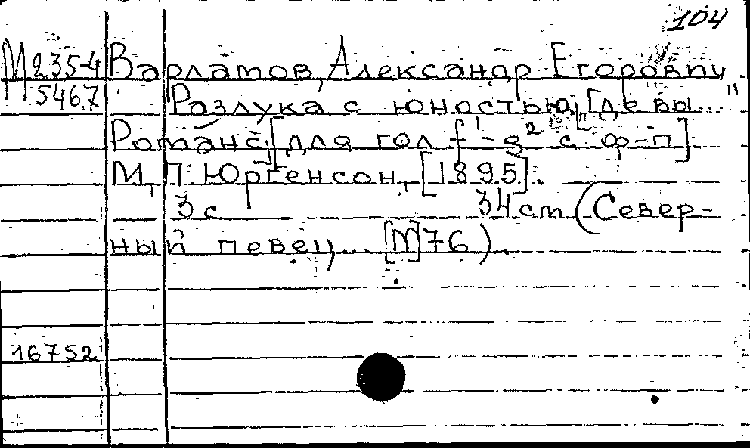 104
М 235-4 Варламов, Александр Егорович
5467 Разлука с юностью. [девы..."
Романс. [для гол f¹-g² с ф-п].
М., П. Юргенсон, [1895].
3 с 34 cm (Север-
ный певец... [N]76).
16752